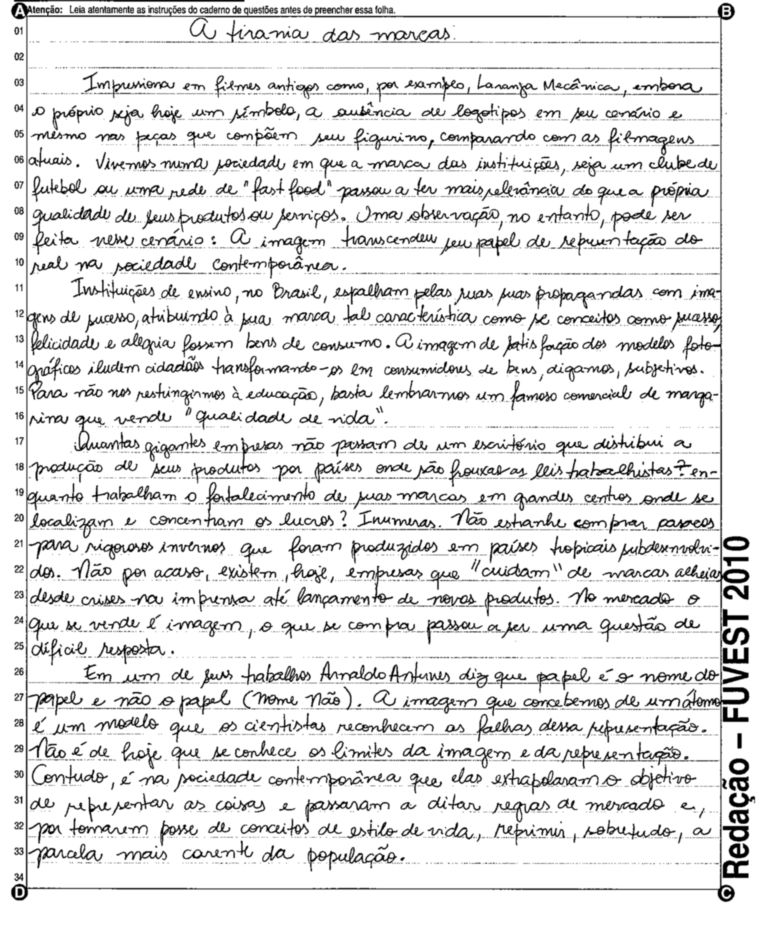 Atenção: Leia atentamente as instruções do caderno de questões antes de preencher essa folha.
A B
01 A tirania das marcas.
02
03 Impressiona em filmes antigos como, por exemplo, Laranja Mecânica, embora
04 o próprio seja hoje um símbolo, a ausência de logotipos em seu cenário e
05 mesmo nas peças que compõem seu figurino, comparando com as filmagens
06 atuais. Vivemos numa sociedade em que a marca das instituições, seja um clube de
07 futebol ou uma rede de "fast food" passou a ter mais relevância do que a própria
08 qualidade de seus produtos ou serviços. Uma observação, no entanto, pode ser
09 feita nesse cenário: A imagem transcendeu seu papel de representação do
10 real na sociedade contemporânea.
11 Instituições de ensino, no Brasil, espalham pelas ruas suas propagandas com ima-
12 gens de sucesso, atribuindo à sua marca tal característica como se conceitos como sucesso,
13 felicidade e alegria fossem bens de consumo. A imagem de satisfação dos modelos foto-
14 gráficos iludem cidadãos transformando-os em consumidores de bens, digamos, subjetivos.
15 Para não nos restringirmos à educação, basta lembrarmos um famoso comercial de marga-
16 rina que vende "qualidade de vida".
17 Quantas gigantes empresas não passam de um escritório que distribui a
18 produção de seus produtos por países onde são frouxas as leis trabalhistas? en-
19 quanto trabalham o fortalecimento de suas marcas em grandes centros onde se
20 localizam e concentram os lucros? Inumeras. Não estranhe comprar casacos
21 para rigorosos invernos que foram produzidos em países tropicais subdesenvolvi-
22 dos. Não por acaso, existem, hoje, empresas que "cuidam" de marcas alheias
23 desde crises na imprensa até lançamento de novos produtos. No mercado o
24 que se vende é imagem, o que se compra passou a ser uma questão de
25 difícil resposta.
26 Em um de seus trabalhos Arnaldo Antunes diz que papel é o nome do
27 papel e não o papel (Nome Não). A imagem que concebemos de um átomo
28 é um modelo que os cientistas reconhecem as falhas dessa representação.
29 Não é de hoje que se conhece os limites da imagem e da representação.
30 Contudo, é na sociedade contemporânea que elas extrapolaram o objetivo
31 de representar as coisas e passaram a ditar regras de mercado e,
32 por tomarem posse de conceitos de estilo de vida, reprimir, sobretudo, a
33 parcela mais carente da população.
34
D C
Redação – FUVEST 2010